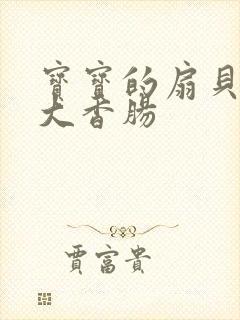 寶寶的扇貝
大香腸
賈富貴